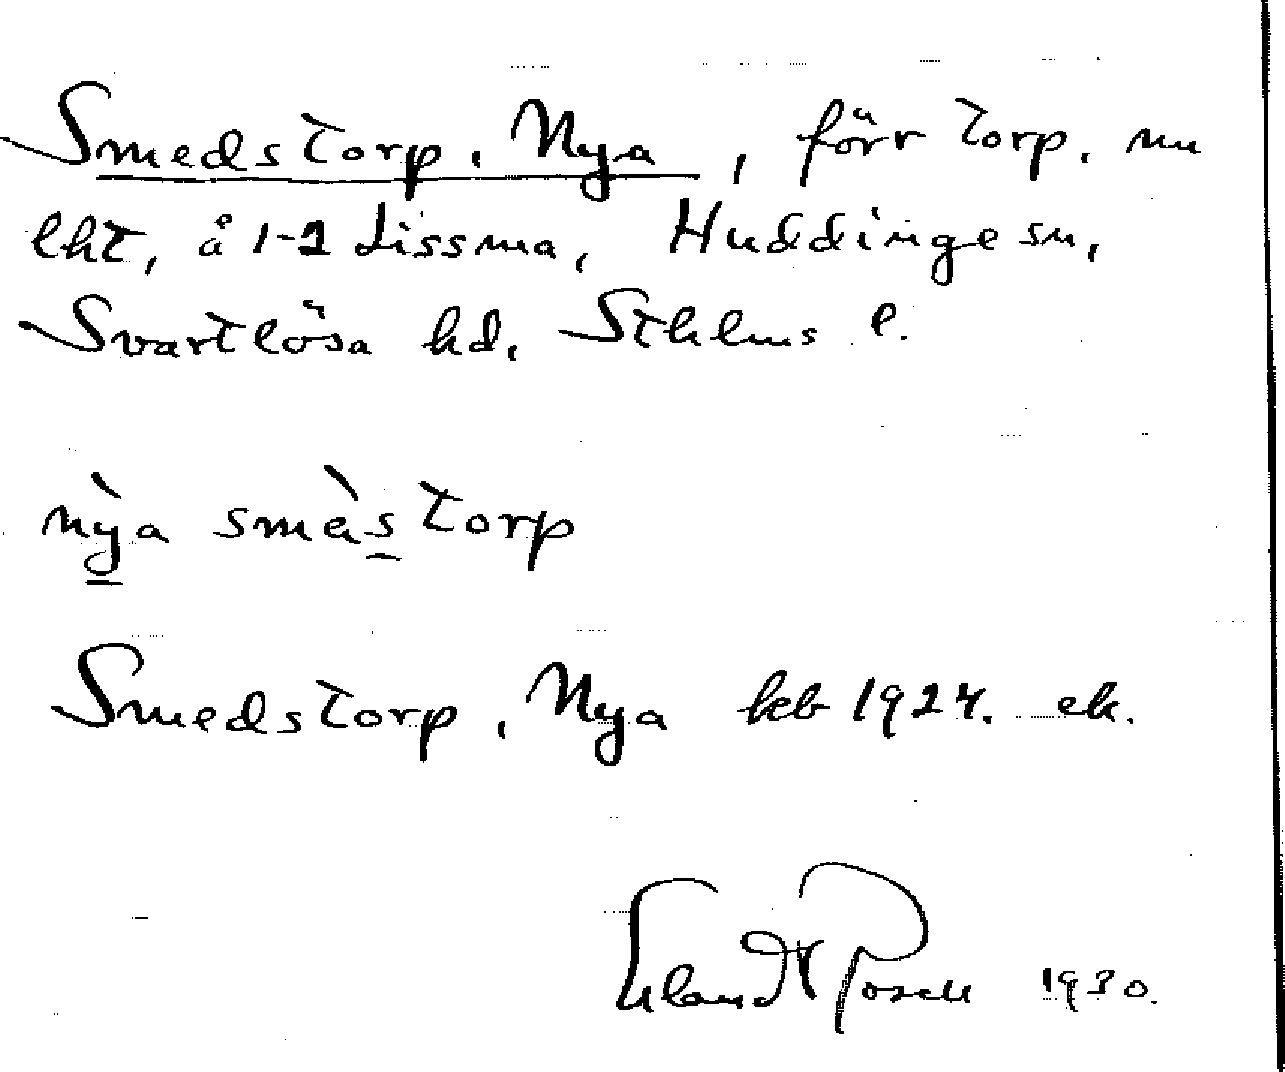 Smedstorp, Nya, förr torp, nu
lht, å 1-2 Lissma, Huddinge sn,
Svartlösa hd, Sthlms l.
nỳa smès torp
Smedstorp, Nya keb 1924. ek.
Erland Rosell 1930.